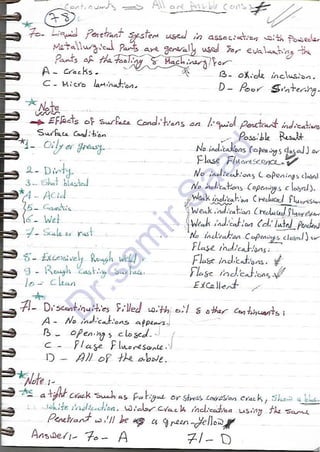 Continuants → All are Possible Correct
78
70 Liquid Penetrant System used in association with Powder
Metallurgical Parts are generally used for evaluating the
Parts of the tooling & Machinery for
A - Cracks. B - oxide inclusion.
C - Micro lamination. D - Poor Sintering.
Note
→ Effects of Surface Conditions on liquid penetrant indications
Surface Condition Possible Result
1 - Oily or greasy. No indications (openings closed) or
Flase Fluorescence.
2 - Dirty. No indications (openings closed)
3 - Shot blasted No indications (openings closed).
4 - ACid Weak indication (reduced fluorescen
5 - Caustic Weak indication (reduced fluorescen
6 - Wet Weak indication (diluted penetrant
7 - Scale or rust No indication (openings closed) or
Flase indications.
8 - Excessively Rough weld Flase indications.
9 - Rough Casting Surface Flase indications.
10 - Clean EXcellent
71 - Discontinuities filled with oil & other Continuants:
A - No indications appears.
B - openings closed.
C - Flase Fluorescence.
D - All of the above.
Note:-
a tight crack such as fatigue or stress corrosion crack, show
white indication. wider crack indication using the same
Penetrant will be a green-yellow
Answer:- 70 - A 71 - D
Dr.Samir Saad